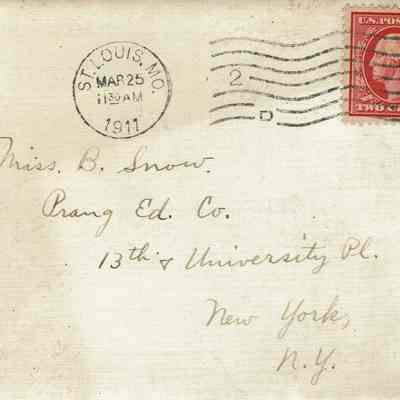 ST. LOUIS, MO.
MAR 25
1130 AM
1911
2
D
U.S. POS
TWO
Miss. B. Snow.
Prang Ed. Co.
13th & University Pl.
New York,
N.Y.